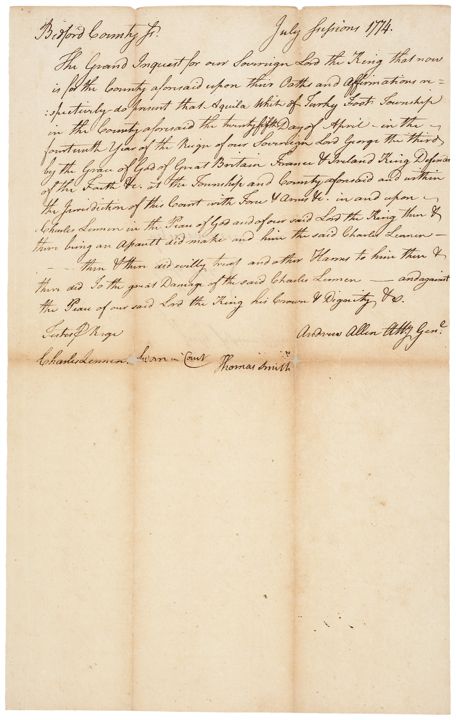 Bedford County Ss. July Sessions 1774.
The Grand Inquest for our Sovereign Lord the King that now
is for the County aforesaid upon their Oaths and Affirmations re=
=spectively do present that Aquila White of Turkey Foot Township
in the County aforesaid the twenty fifth Day of April in the
fourteenth Year of the Reign of our Sovereign Lord George the third
by the Grace of God of Great Britain France & Ireland King Defender
of the Faith &c. at the Township and County aforesaid and within
the Jurisdiction of this Court with Force & Arms &c. in and upon
Charles Lennen in the Peace of God and of our said Lord the King then &
there being an Assault did make and him the said Charles Lennen
then & there did evilly treat and other Harms to him then &
there did to the great Damage of the said Charles Lennen and against
the Peace of our said Lord the King his Crown & Dignity &c.
Testes P Rege
Andrew Allen Atty Genl.
Charles Lennen Sworn in Court Thomas Smith